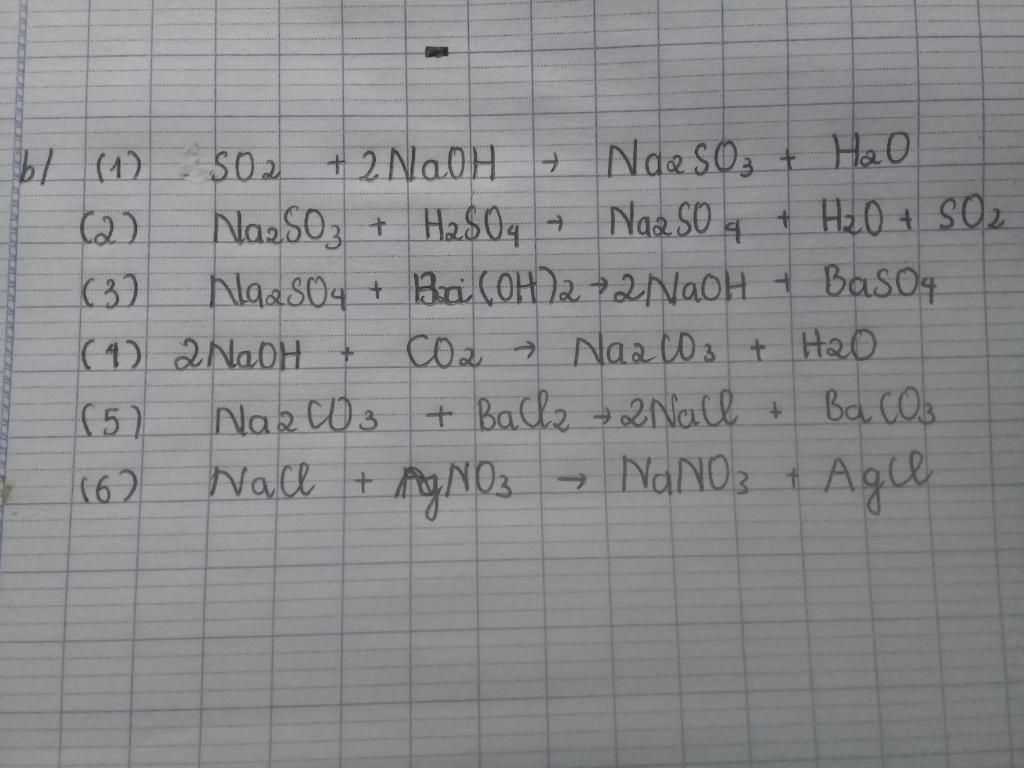 b/ (1) SO2 + 2NaOH → Na2SO3 + H2O
(2) Na2SO3 + H2SO4 → Na2SO4 + H2O + SO2
(3) Na2SO4 + Ba(OH)2 → 2NaOH + BaSO4
(4) 2NaOH + CO2 → Na2CO3 + H2O
(5) Na2CO3 + BaCl2 → 2NaCl + BaCO3
(6) NaCl + AgNO3 → NaNO3 + AgCl